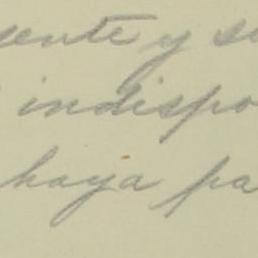 sente y su
indispo
haya pa